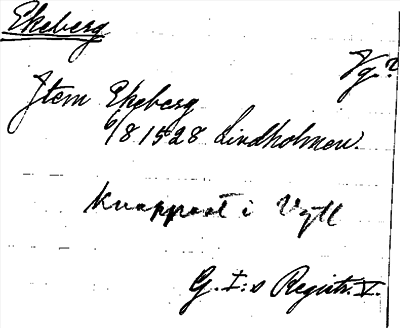 Ekeberg
Vg.?
Item Ekeberg
6/8 1528 Lindholmen.
Knappast i Vgtl
G. I:s Registr. V.